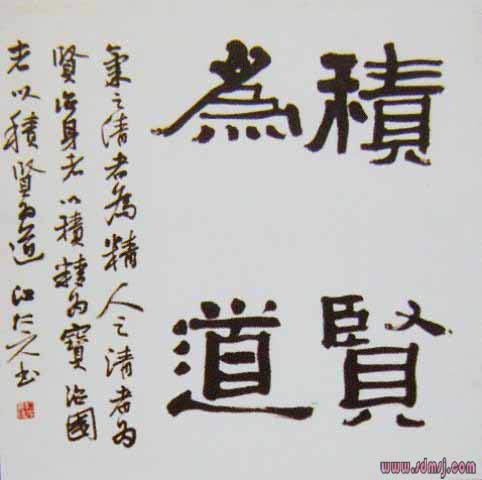 積賢
為道
氣之清者為精人之清者为
賢治身者以積精为寶治國
者以積賢为道 江 书
www.sdmsj.com